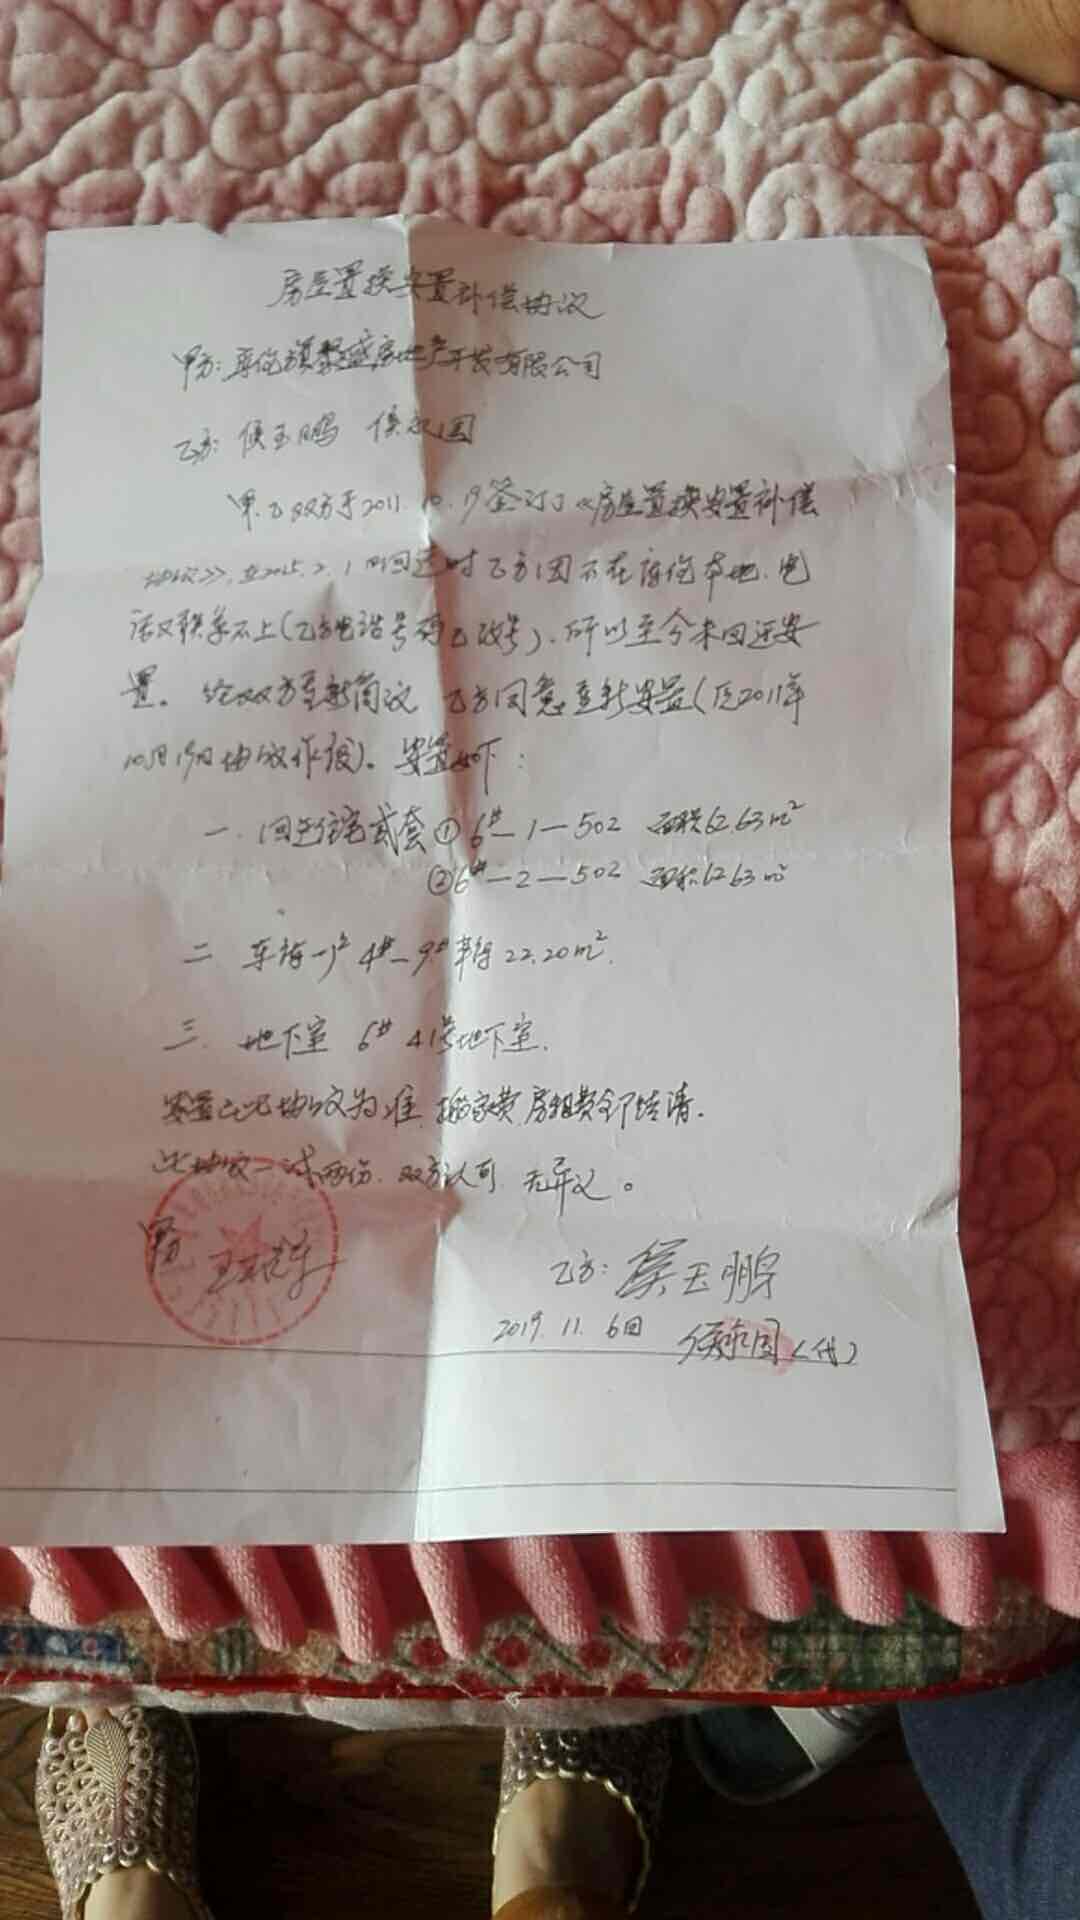 房屋置换安置补偿协议
甲方: 库伦旗聚盛房地产开发有限公司
乙方: 侯玉鹏 侯永国
甲.乙双方于2011.10.19签订了《房屋置换安置补偿
协议》,在2015.2.1回迁时乙方因不在库伦本地.电
话联系不上(乙方电话号码已改号),所以至今未回迁安
置。经双方重新商议 乙方同意重新安置(原2011年
10月19日协议作废)。安置如下:
一.回迁住宅贰套①6#—1—502 面积62.63m²
②6#—2—502 面积62.63m²
二 车库一个 4#—9#车库22.20m².
三. 地下室 6# 41号地下室.
安置以此协议为准 搬家费,房租费全部结清.
此协议一式两份.双方认可,无异议。
甲方
乙方: 侯玉鹏
2019.11.6日 侯永国(代)